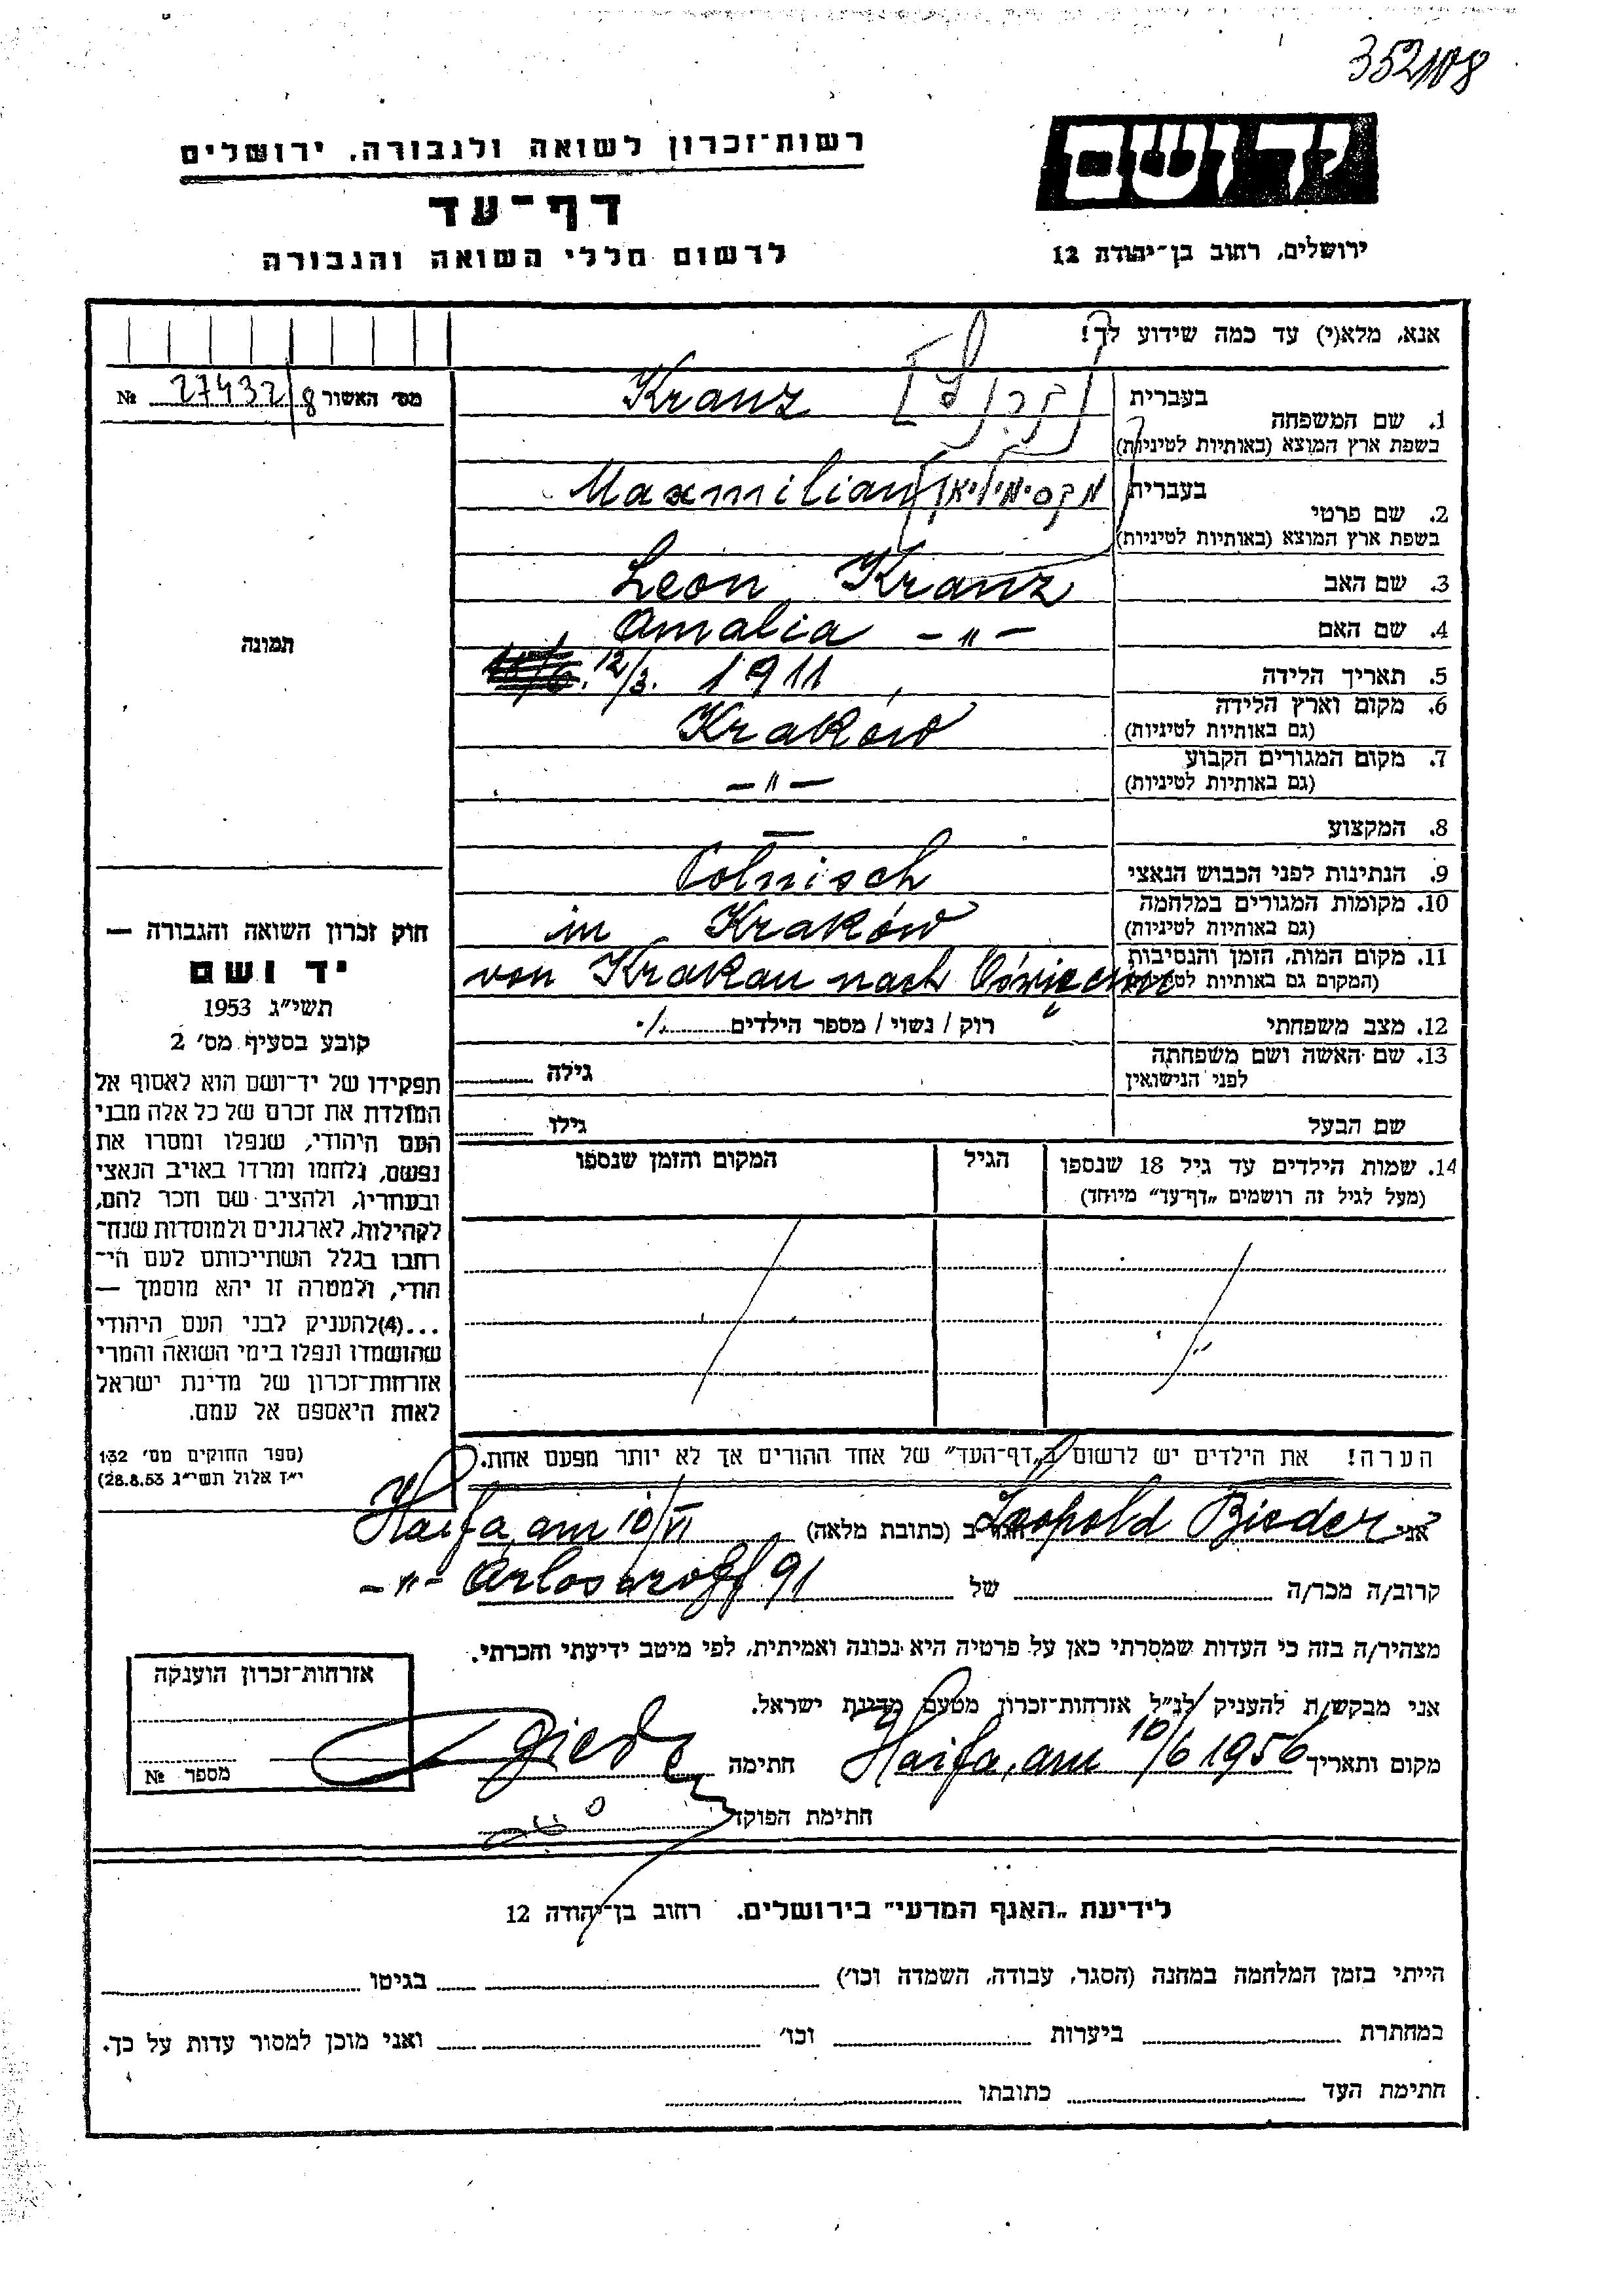 352108
יד ושם
רשות־זכרון לשואה ולגבורה, ירושלים
דף־עד
לרשום חללי השואה והגבורה
ירושלים, רחוב בן־יהודה 12
אנא, מלא(י) עד כמה שידוע לך!
מס׳ האשור 27432/8 №
1. שם המשפחה
בעברית
בשפת ארץ המוצא (באותיות לטיניות)
Kranz
2. שם פרטי
בעברית
בשפת ארץ המוצא (באותיות לטיניות)
מקסימיליאן Maxmilian
3. שם האב Leon Kranz
4. שם האם Amalia —〃—
5. תאריך הלידה 12/3. 1911
6. מקום וארץ הלידה
(גם באותיות לטיניות) Kraków
7. מקום המגורים הקבוע
(גם באותיות לטיניות) —〃—
8. המקצוע —
9. הנתינות לפני הכבוש הנאצי Polnisch
10. מקומות המגורים במלחמה
(גם באותיות לטיניות) in Kraków
11. מקום המות, הזמן והנסיבות
(המקום גם באותיות לטיניות) von Krakau nach Oświęcim
12. מצב משפחתי רוק / נשוי / מספר הילדים
13. שם האשה ושם משפחתה
לפני הנישואין
גילה
שם הבעל
גילו
תמונה
חוק זכרון השואה והגבורה —
יד ושם
תשי״ג 1953
קובע בסעיף מס׳ 2
תפקידו של יד־ושם הוא לאסוף אל
המולדת את זכרם של כל אלה מבני
העם היהודי, שנפלו ומסרו את
נפשם, נלחמו ומרדו באויב הנאצי
ובעוזריו, ולהציב שם וזכר להם,
לקהילות, לארגונים ולמוסדות שנח־
רחבו בגלל השתייכותם לעם הי־
הודי, ולמטרה זו יהא מוסמך —
...(4)להעניק לבני העם היהודי
שהושמדו ונפלו בימי השואה והמרי
אזרחות־זכרון של מדינת ישראל
לאות היאספם אל עמם.
(ספר החוקים מס׳ 132
י״ז אלול תשי״ג 28.8.53)
14. שמות הילדים עד גיל 18 שנספו
(מעל לגיל זה רושמים „דף־עד״ מיוחד)
הגיל
המקום והזמן שנספו
הערה! את הילדים יש לרשום ב„דף־העד״ של אחד ההורים אך לא יותר מפעם אחת.
אני Leopold Bieder הגר ב (כתובת מלאה) Haifa, am 10/VI
קרוב/ה מכר/ה של —〃— Arlosoroff 91
מצהיר/ה בזה כי העדות שמסרתי כאן על פרטיה היא נכונה ואמיתית, לפי מיטב ידיעתי והכרתי.
אני מבקש/ת להעניק לנ״ל אזרחות־זכרון מטעם מדינת ישראל.
מקום ותאריך Haifa, am 10/6 1956 חתימה
חתימת הפוקד
אזרחות־זכרון הוענקה
מספר №
לידיעת „האגף המדעי״ בירושלים. רחוב בן־יהודה 12
הייתי בזמן המלחמה במחנה (הסגר, עבודה, השמדה וכו׳) בגיטו
במחתרת ביערות וכו׳ ואני מוכן למסור עדות על כך.
חתימת העד כתובתו